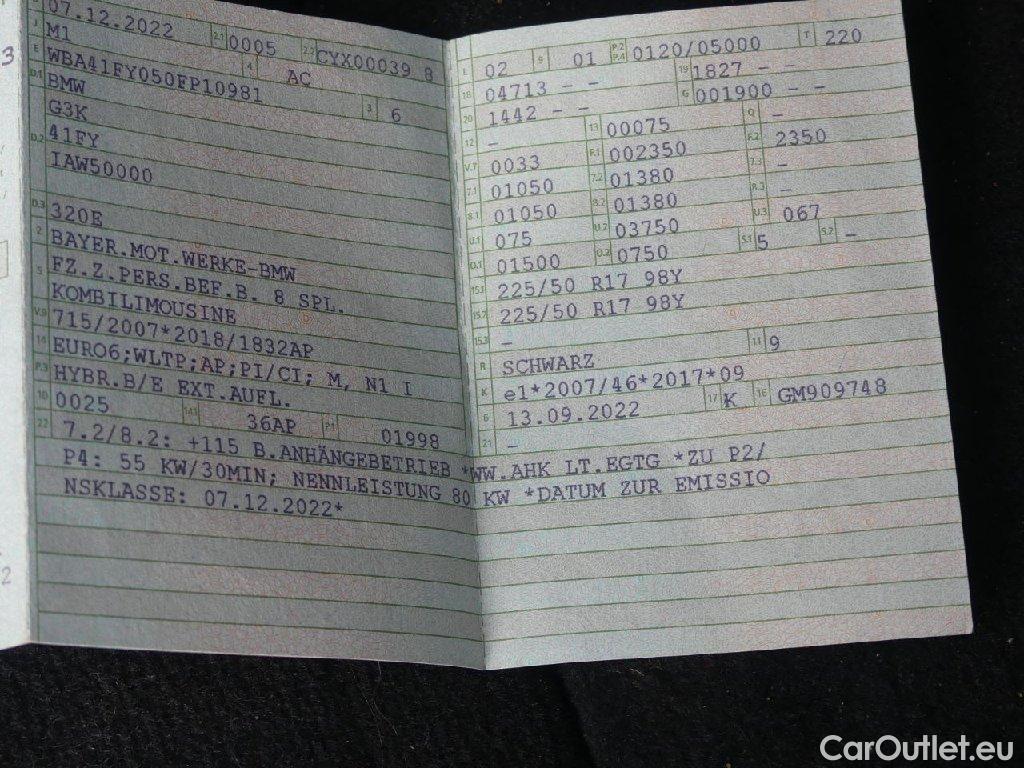 07.12.2022 2.1 0005 2.2 CYX00039 8
J M1 4 AC
E WBA41FY050FP10981 3 6
D.1 BMW
G3K
D.2 41FY
IAW50000
D.3 320E
2 BAYER.MOT.WERKE-BMW
5 FZ.Z.PERS.BEF.B. 8 SPL.
KOMBILIMOUSINE
V.9 715/2007*2018/1832AP
14 EURO6;WLTP;AP;PI/CI; M, N1 I
P.3 HYBR.B/E EXT.AUFL.
10 0025 14.1 36AP P.1 01998
L 02 9 01 P.2 P.4 0120/05000 T 220
18 04713 - - 19 1827 - -
20 1442 - - G 001900 - -
12 - 13 00075 Q -
V.7 0033 F.1 002350 F.2 2350
7.1 01050 7.2 01380 7.3 -
8.1 01050 8.2 01380 8.3 -
U.1 075 U.2 03750 U.3 067
O.1 01500 O.2 0750 S.1 5 S.2 -
15.1 225/50 R17 98Y
15.2 225/50 R17 98Y
15.3 -
R SCHWARZ 11 9
K e1*2007/46*2017*09
6 13.09.2022 17 K 16 GM909748
21 -
22 7.2/8.2: +115 B.ANHÄNGEBETRIEB *WW.AHK LT.EGTG *ZU P2/
P4: 55 KW/30MIN; NENNLEISTUNG 80 KW *DATUM ZUR EMISSIO
NSKLASSE: 07.12.2022*
3
2
CarOutlet.eu